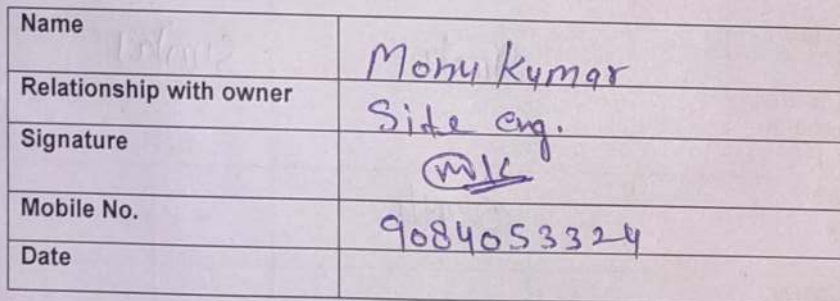 Name Monu Kumar
Relationship with owner Site eng.
Signature MK
Mobile No. 9084053324
Date